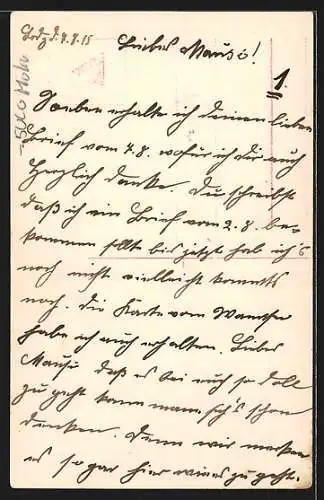 Lodz d. 9.8.15
Liebes Mausi!
1.
Soeben erhalte ich deinen lieben
Brief vom 7.8. wofür ich dir auch
Herzlich danke. Du schreibst
daß ich ein Brief vom 2.8. be-
kommen sollte bis jetzt hab ich's
noch nicht vielleicht kommts
noch. die Karte vom
habe ich auch erhalten. Liebes
Mausi daß es bei euch so doll
zu geht kann mann sich's schon
denken. Denn wir merken
es so gar hier wies zu geht.